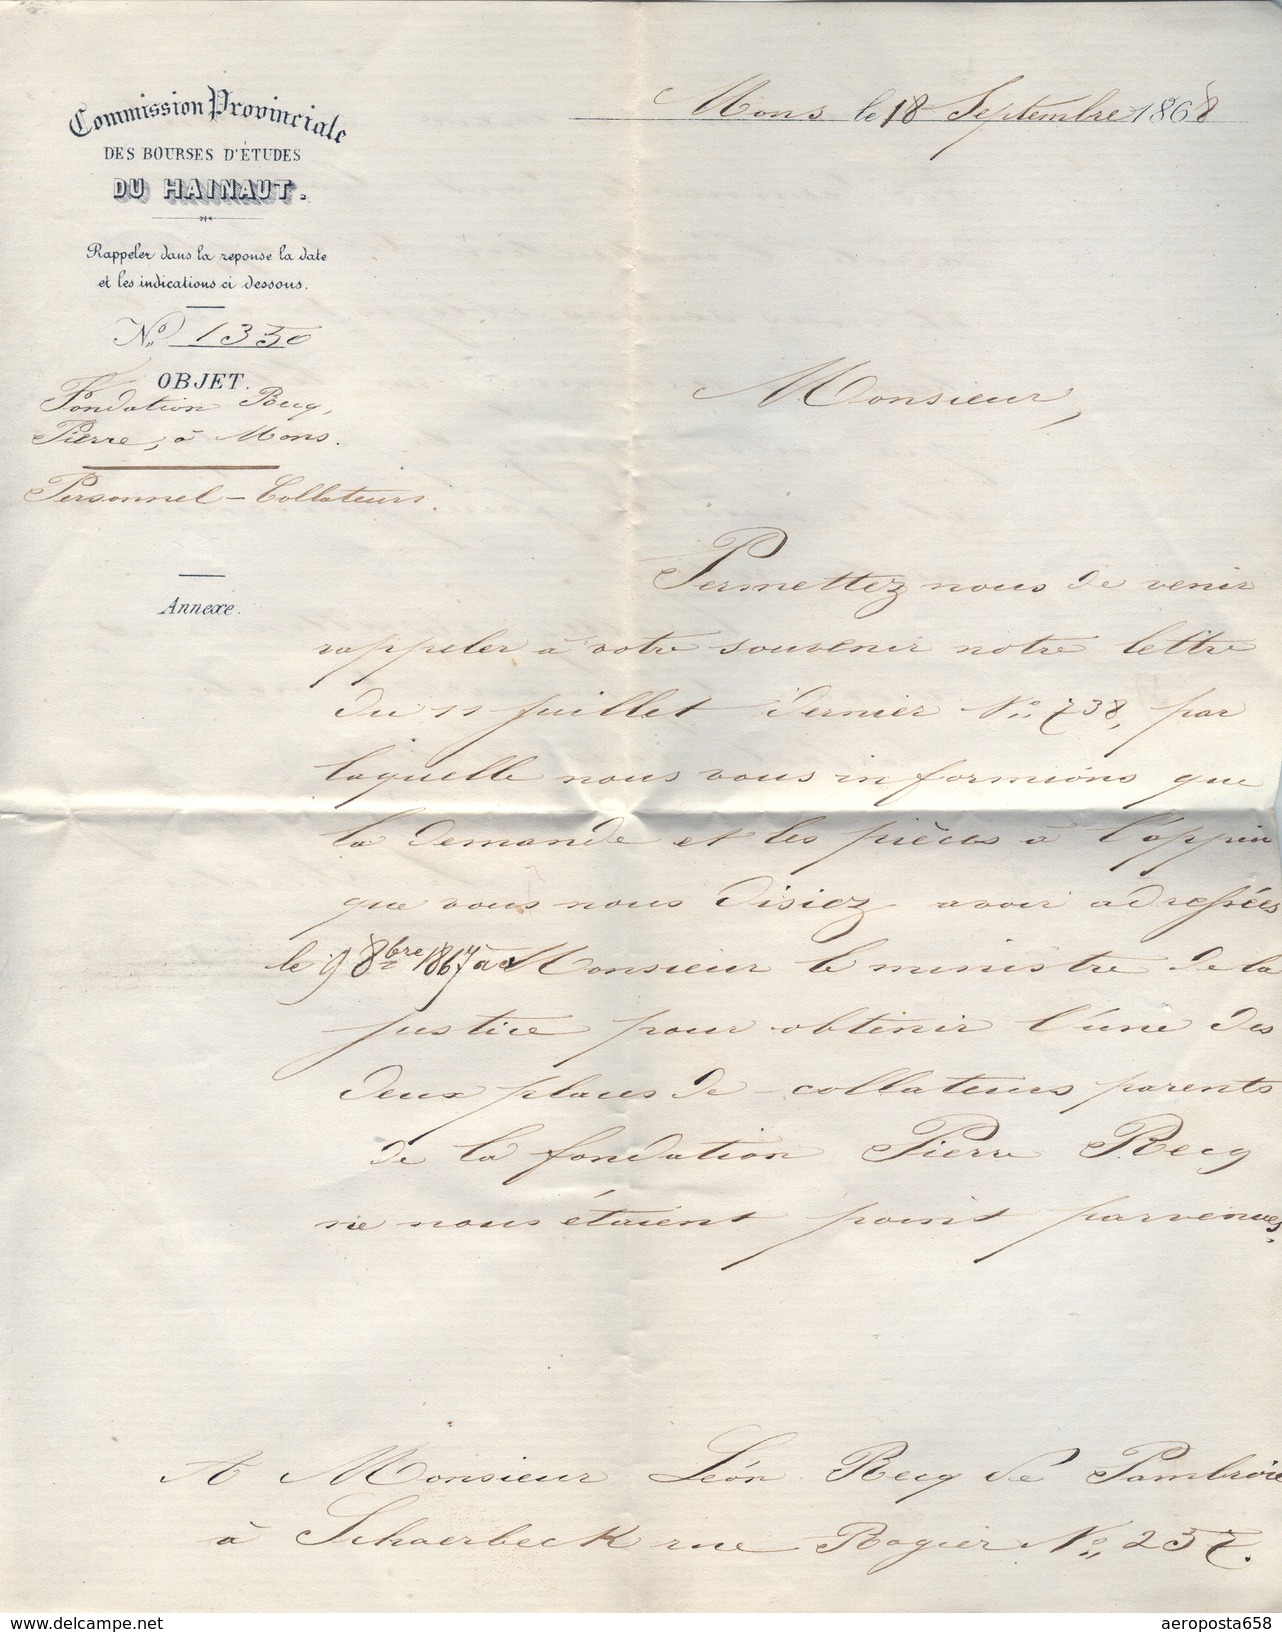 Mons le 18 Septembre 1868
Commission Provinciale
DES BOURSES D'ÉTUDES
DU HAINAUT.
Rappeler dans la reponse la date
et les indications ci dessous.
No. 1350
OBJET.
Fondation Recq,
Pierre, à Mons.
Personnel - Collateurs.
Annexe.
Monsieur,
Permettez nous de venir
rappeler à votre souvenir notre lettre
du 11 juillet dernier No. 738, par
laquelle nous vous informions que
la demande et les pièces à l'appui
que vous nous disiez avoir adressées
le 9 8bre 1867 à Monsieur le ministre de la
justice pour obtenir l'une des
deux places de collateurs parents
de la fondation Pierre Recq
ne nous étaient point parvenues.
A Monsieur Léon Recq de Pambroie
à Schaerbeck rue Rogier No. 237.
www.delcampe.net
aeroposta658